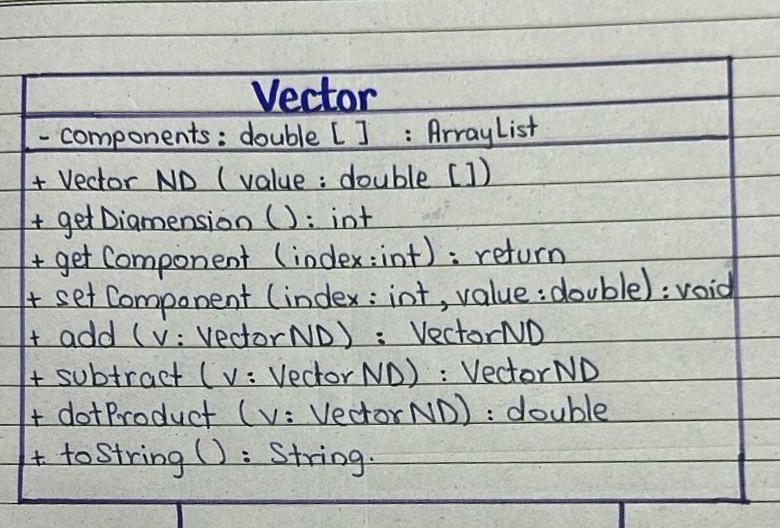 Vector
- components: double [ ] : ArrayList
+ Vector ND (value : double [])
+ getDiamension () : int
+ get Component (index:int) : return
+ set Component (index : int, value : double) : void
+ add (v : VectorND) : VectorND
+ subtract (v : Vector ND) : VectorND
+ dotProduct (v : Vector ND) : double
+ toString () : String.